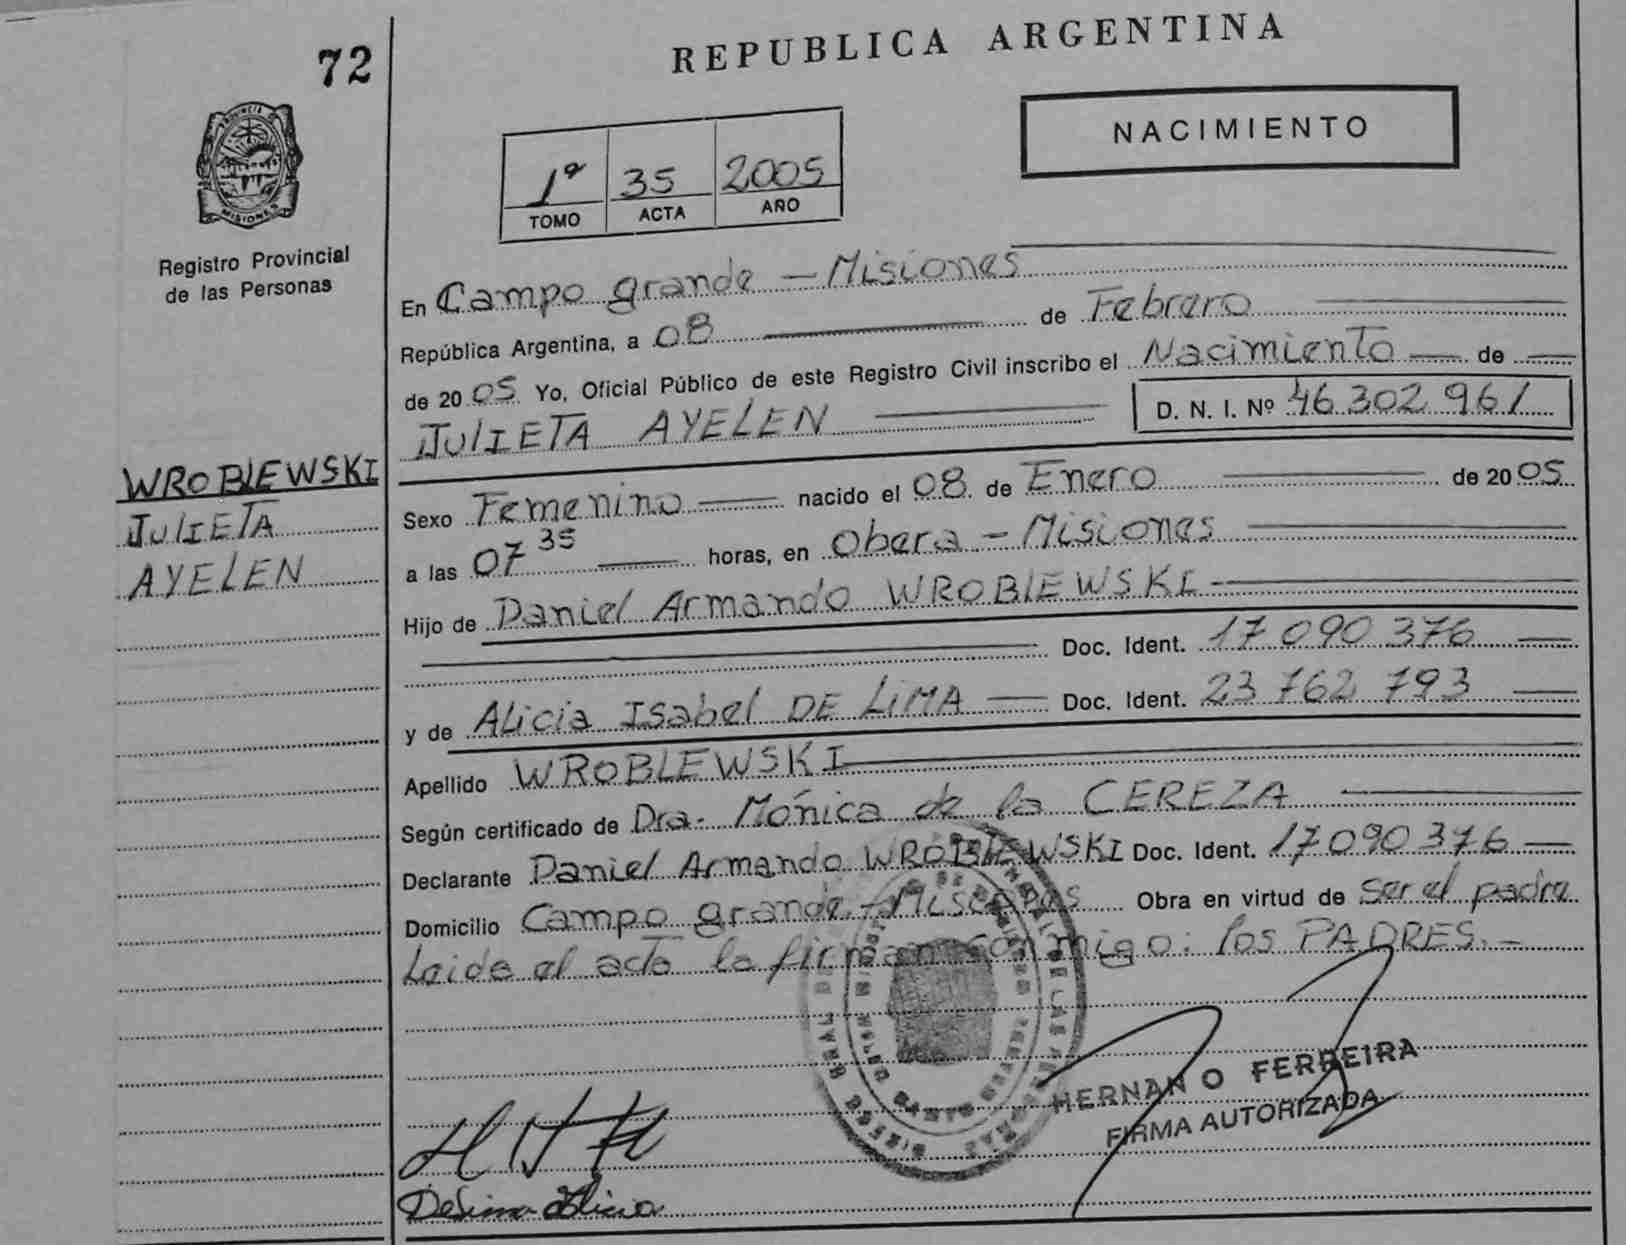 72
REPUBLICA ARGENTINA
NACIMIENTO
1º 35 2005
TOMO ACTA AÑO
PROVINCIA DE
MISIONES
Registro Provincial
de las Personas
En Campo grande — Misiones
República Argentina, a 08 de Febrero
de 2005 Yo, Oficial Público de este Registro Civil inscribo el Nacimiento de
JUlIETA AYELEN D. N. I. Nº 46 302 961
WROBlEWSKI
JULIETA
AYELEN
Sexo Femenino nacido el 08 de Enero de 2005
a las 07 35 horas, en Obera – Misiones
Hijo de Daniel Armando WROBlEWSKI
Doc. Ident. 17 090 376
y de Alicia Isabel DE LiMA Doc. Ident. 23 762 793
Apellido WROBLEWSKI
Según certificado de Dra. Mónica de la CEREZA
Declarante Daniel Armando WROBlEWSKI Doc. Ident. 17 090 376
Domicilio Campo grande – Misiones Obra en virtud de ser el padre
Leida el acta la firman conmigo: los PADRES. –
HERNAN O FERREIRA
FIRMA AUTORIZADA